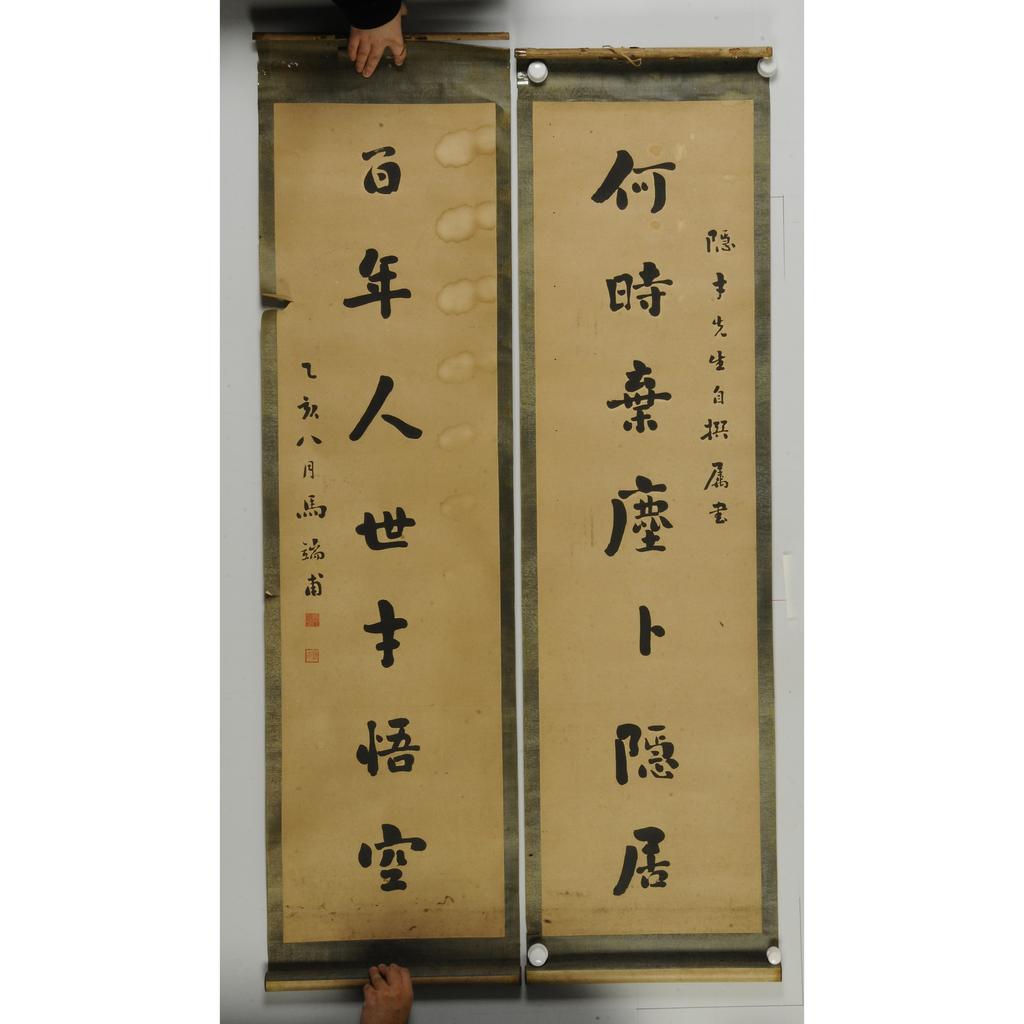 隱才先生自撰屬書
何時棄塵卜隱居
百年人世才悟空
乙亥八月馬端甫